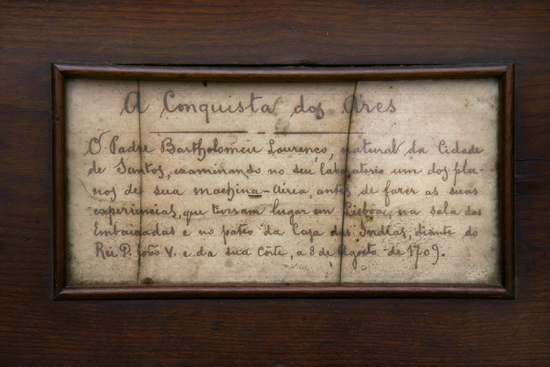 A Conquista dos Ares
O Padre Bartholomeu Lourenço, natural da Cidade
de Santos, examinando no seu laboratorio um dos pla-
nos de sua machina-Aéria, antes de fazer as suas
experiencias, que tiveram lugar em Lisboa, na sala das
Embaixadas e no pateo da Casa das Indias, diante do
Rei D. João V. e da sua Côrte, a 8 de Agosto de 1709.